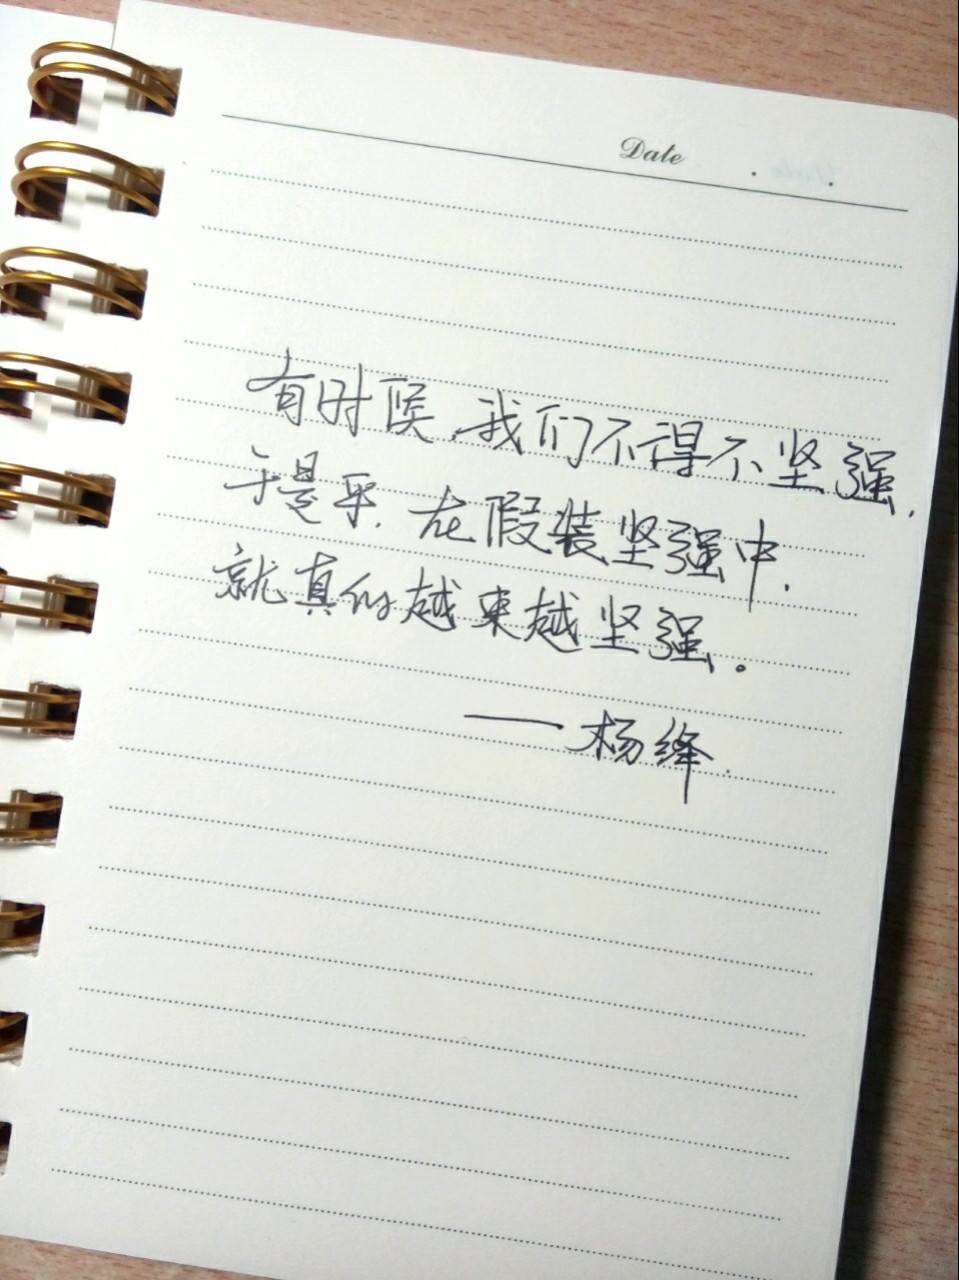 Date
有时候,我们不得不坚强,
于是乎,在假装坚强中,
就真的越来越坚强。
——杨绛.